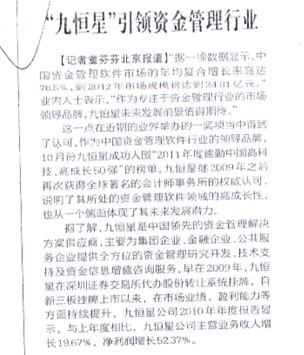 “九恒星”引领资金管理行业
【记者董芬芬北京报道】“据一项数据显示，中
国资金管理软件市场的年均复合增长率高达
76.5%，到2012年市场规模将达到24.81亿元。”
业内人士表示，“作为专注于资金管理行业的市场
领导品牌，九恒星未来发展前景值得期待。”
这一点在近期的业界举办的一奖项当中得到
了认可。作为中国资金管理软件行业的领导品牌，
10月份九恒星成功入围“2011年度德勤中国高科
技、高成长50强”的榜单。九恒星继2009年之后
再次获得全球著名的会计师事务所的权威认可，
说明了其所处的资金管理软件领域的高成长性，
也从一个侧面体现了其未来发展潜力。
据了解，九恒星是中国领先的资金管理解决
方案供应商，主要为集团企业、金融企业、公共服
务企业提供全方位的资金管理研究开发、技术支
持及资金信息增值咨询服务。早在2009年，九恒
星在深圳证券交易所代办股份转让系统挂牌。自
新三板挂牌上市以来，在市场业绩、盈利能力等
方面持续提升，九恒星公司2010年年度报告显
示，与上年度相比，九恒星公司主营业务收入增
长19.67%，净利润增长52.37%。